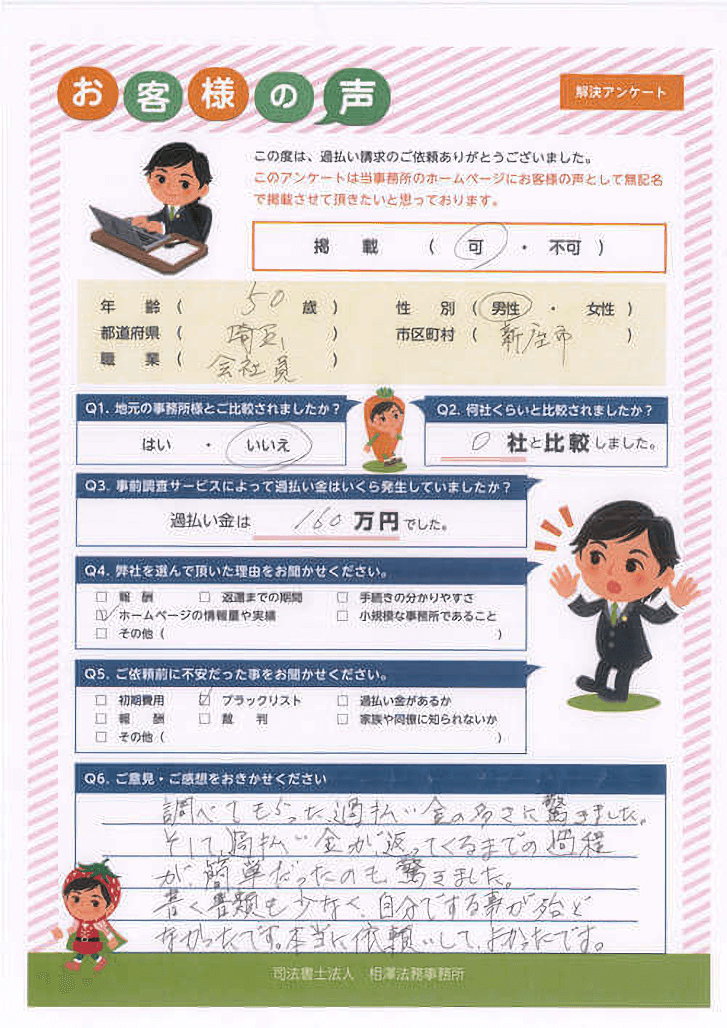 お客様の声
解決アンケート
この度は、過払い請求のご依頼ありがとうございました。
このアンケートは当事務所のホームページにお客様の声として無記名
で掲載させて頂きたいと思っております。
掲　載　（　可　・　不可　）
年　齢（　50　歳　）　性　別（　男性　・　女性　）
都道府県（　埼玉　）　市区町村（　新座市　）
職　業（　会社員　）
Q1. 地元の事務所様とご比較されましたか？
はい　・　いいえ
Q2. 何社くらいと比較されましたか？
0 社と比較しました。
Q3. 事前調査サービスによって過払い金はいくら発生していましたか？
過払い金は　160 万円でした。
Q4. 弊社を選んで頂いた理由をお聞かせください。
□ 報　酬　□ 返還までの期間　□ 手続きの分かりやすさ
☑ ホームページの情報量や実績　□ 小規模な事務所であること
□ その他（　）
Q5. ご依頼前に不安だった事をお聞かせください。
□ 初期費用　☑ ブラックリスト　□ 過払い金があるか
□ 報　酬　□ 裁　判　□ 家族や同僚に知られないか
□ その他（　）
Q6. ご意見・ご感想をおきかせください
調べてもらった、過払い金の多さに驚きました。
そして、過払い金が、返ってくるまでの過程
が、簡単だったのも、驚きました。
書く書類も少なく、自分でする事が殆ど
なかったです。本当に依頼いして、よかったです。
司法書士法人　相澤法務事務所